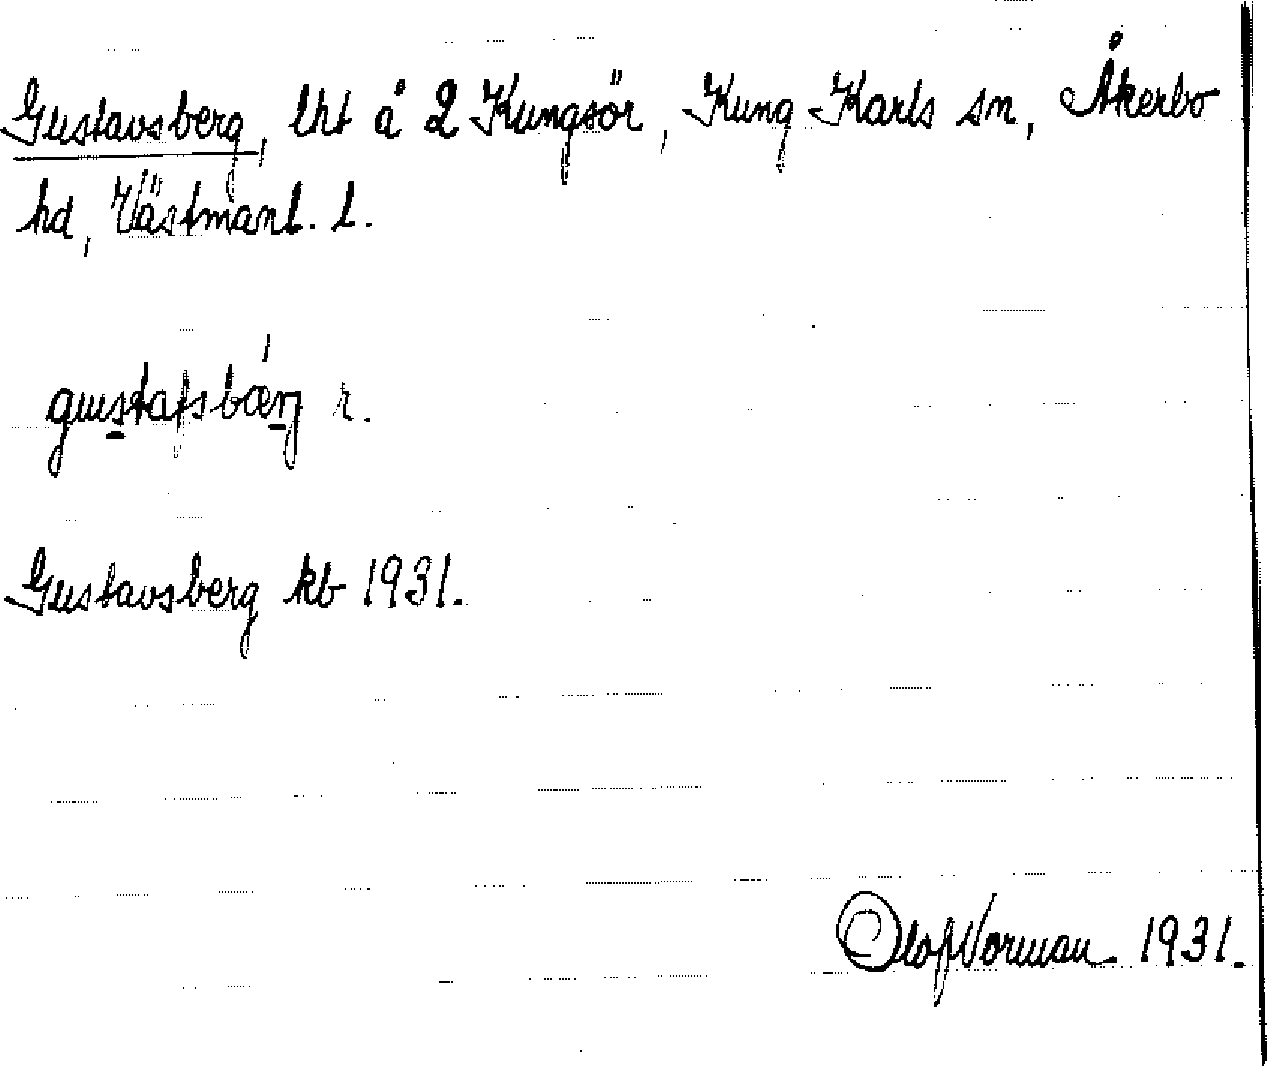 Gustavsberg, lht å 2 Kungsör, Kung Karls sn, Åkerbo
hd, Västmanl. l.
gustafsbærj r.
Gustavsberg kb 1931.
Olof Norman 1931.